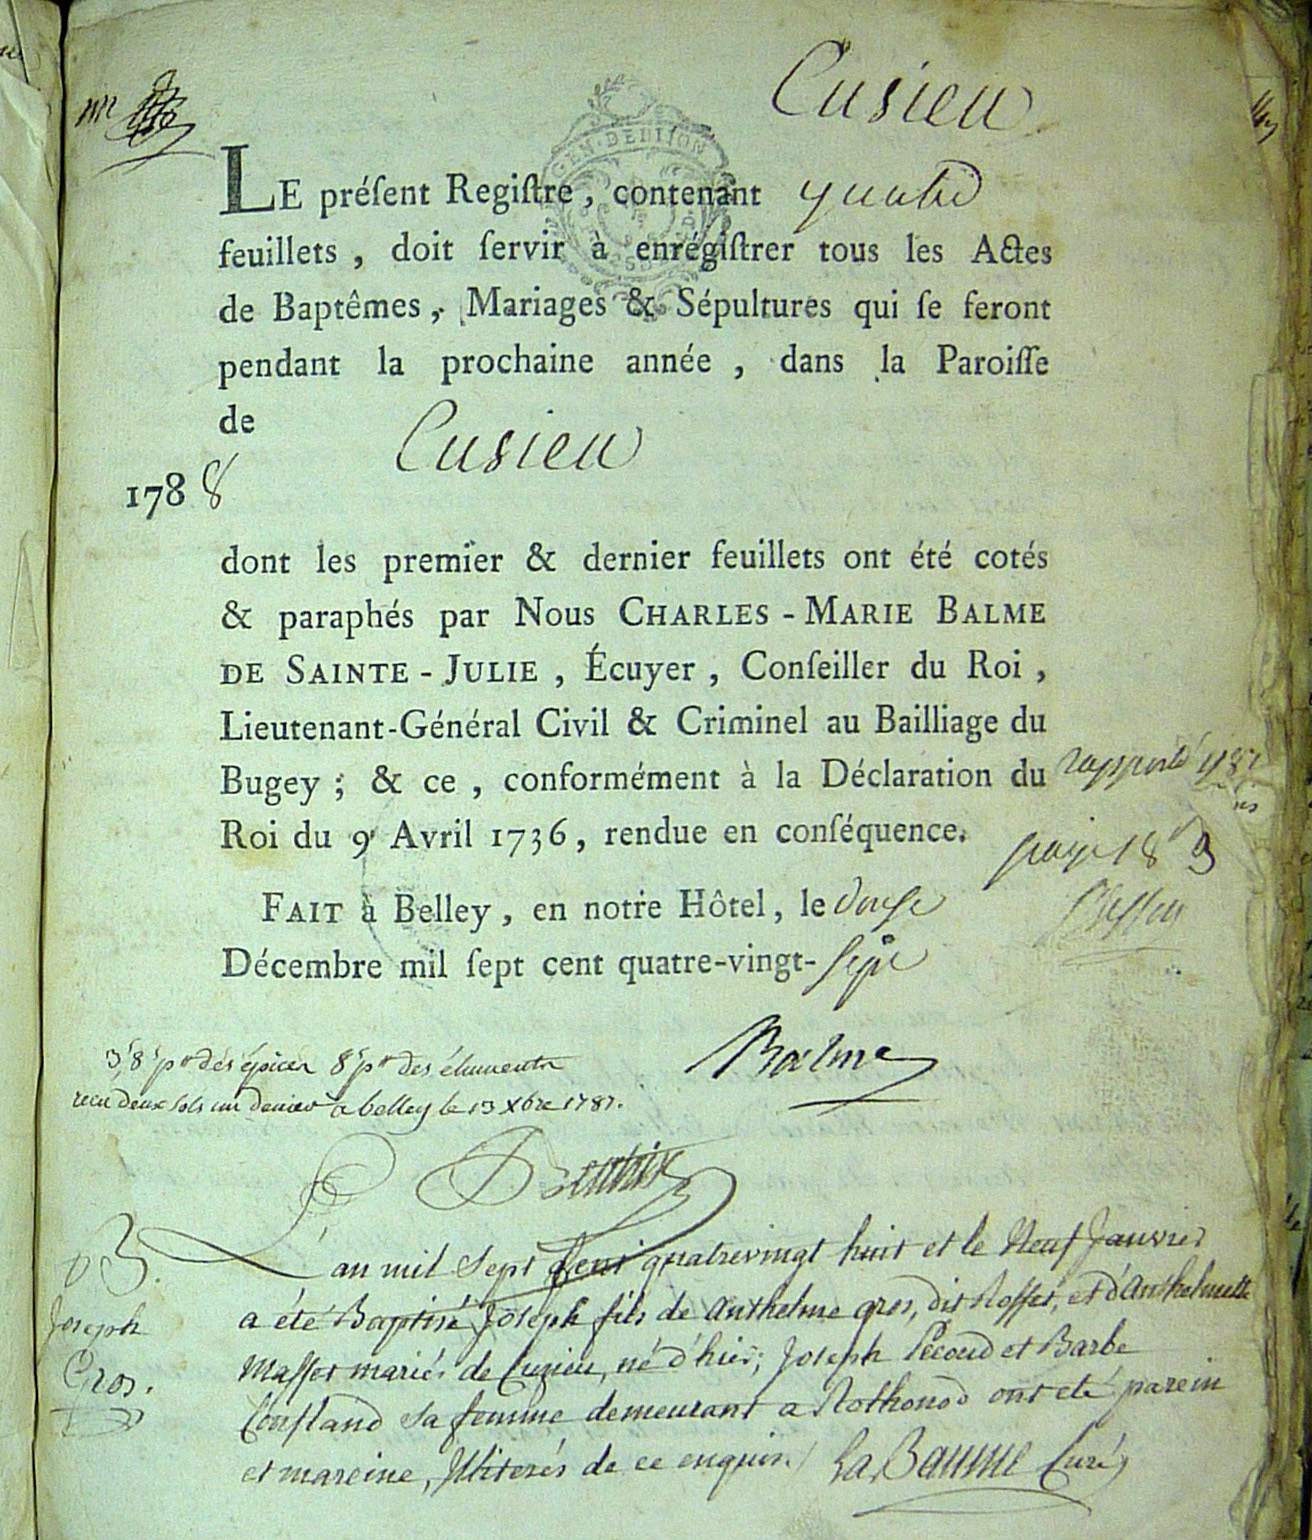 Cusieu
GEN · DE DIJON
LE préſent Regiſtre, contenant quatre
feuillets, doit ſervir à enrégiſtrer tous les Actes
de Baptêmes, Mariages & Sépultures qui ſe feront
pendant la prochaine année, dans la Paroiſſe
de Cusieu
1788
dont les premier & dernier feuillets ont été cotés
& paraphés par Nous CHARLES-MARIE BALME
DE SAINTE-JULIE, Écuyer, Conſeiller du Roi,
Lieutenant-Général Civil & Criminel au Bailliage du
Bugey; & ce, conformément à la Déclaration du
Roi du 9 Avril 1736, rendue en conſéquence.
rapporté
FAIT à Belley, en notre Hôtel, le douse
Décembre mil ſept cent quatre-vingt-sept
Balme
3 8 pr des épices 8 pr des
recu deux sols un denier a belley le 13 xbre 1787.
L'an mil sept cent quatrevingt huit et le Neuf Janvier
a été Baptisé Joseph fils de Anthelme gros, dit Roſſet, et d'Anthelmette
Maſſet mariés de Cusieu, né d'hier; Joseph Pecoud et Barbe
Conſtand sa femme demeurant a Rothonod ont eté parein
et mareine, Illiterés de ce enquis. La Baume Curé
B.
Joseph
Gros.